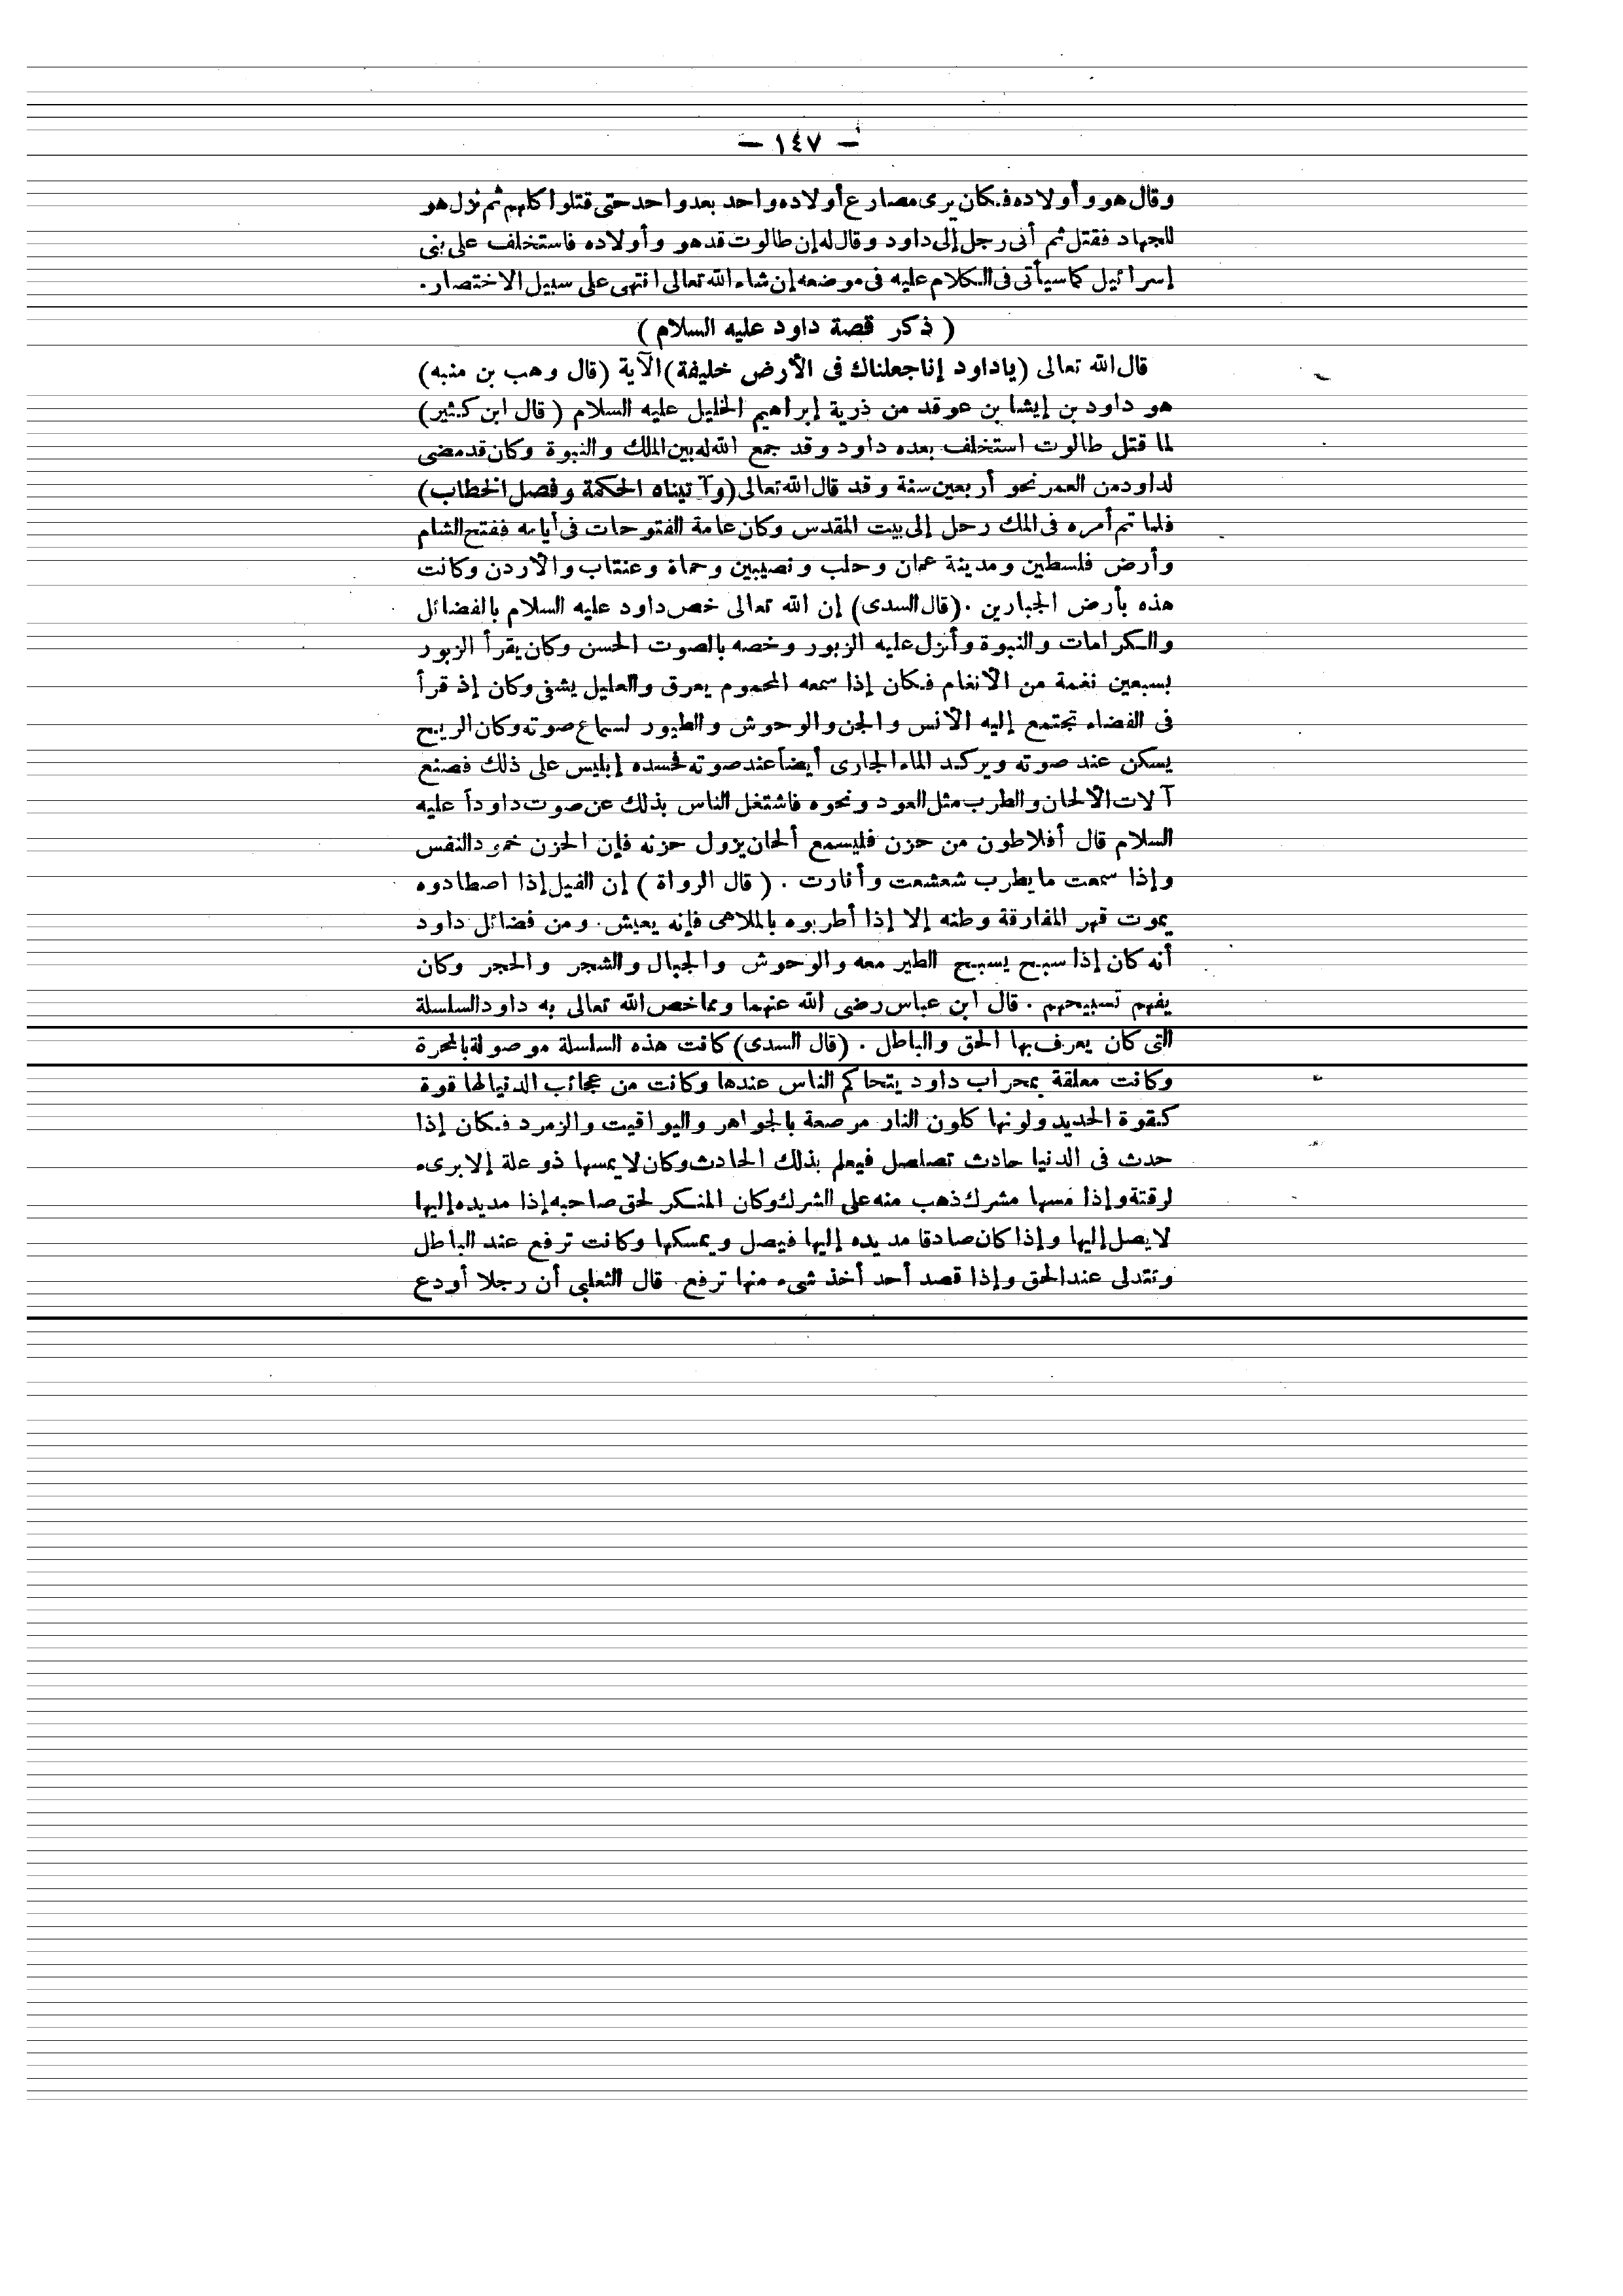 — ١٤٧ —
وقال هو وأولاده فكان يرى مصارع أولاده واحد بعد واحد حتى قتلوا كلهم ثم نزل هو
للجهاد فقتل ثم أتى رجل إلى داود وقال له إن طالوت قد هو وأولاده فاستخلف على بنى
إسرائيل كما سيأتى فى الكلام عليه فى موضعه إن شاء الله تعالى انتهى على سبيل الاختصار.
( ذكر قصة داود عليه السلام )
قال الله تعالى (ياداود إنا جعلناك فى الأرض خليفة) الآية (قال وهب بن منبه)
هو داود بن إيشا بن عوقد من ذرية إبراهيم الخليل عليه السلام ( قال ابن كثير)
لما قتل طالوت استخلف بعده داود وقد جمع الله له بين الملك والنبوة وكان قد مضى
لداود من العمر نحو أربعين سنة وقد قال الله تعالى (وآتيناه الحكمة وفصل الخطاب)
فلما تم أمره فى الملك رحل إلى بيت المقدس وكان عامة الفتوحات فى أيامه ففتح الشام
وأرض فلسطين ومدينة عمان وحلب ونصيبين وحماة وعنتاب والأردن وكانت
هذه بأرض الجبارين . (قال السدى) إن الله تعالى خص داود عليه السلام بالفضائل
والكرامات والنبوة وأنزل عليه الزبور وخصه بالصوت الحسن وكان يقرأ الزبور
بسبعين نغمة من الأنغام فكان إذا سمعه المحموم يعرق والعليل يشفى وكان إذ قرأ
فى الفضاء تجتمع إليه الأنس والجن والوحوش والطيور لسماع صوته وكان الريح
يسكن عند صوته ويركد الماء الجارى أيضاً عند صوته فحسده إبليس على ذلك فصنع
آلات الألحان والطرب مثل العود ونحوه فاشتغل الناس بذلك عن صوت داوداً عليه
السلام قال أفلاطون من حزن فليسمع ألحان يزول حزنه فإن الحزن خمود النفس
وإذا سمعت ما يطرب شعشعت وأنارت . ( قال الرواة ) إن الفيل إذا اصطادوه
يموت قهر المفارقة وطنه إلا إذا أطربوه بالملاهى فإنه يعيش. ومن فضائل داود
أنه كان إذا سبح يسبح الطير معه والوحوش والجبال والشجر والحجر وكان
يفهم تسبيحهم . قال ابن عباس رضى الله عنهما ومما خص الله تعالى به داود السلسلة
التى كان يعرف بها الحق والباطل . (قال السدى) كانت هذه السلسلة موصولة بالمجرة
وكانت معلقة بمحراب داود يتحاكم الناس عندها وكانت من عجائب الدنيا لها قوة
كقوة الحديد ولونها كلون النار مرصعة بالجواهر واليواقيت والزمرد فكان إذا
حدث فى الدنيا حادث تصلصل فيعلم بذلك الحادث وكان لا يمسها ذو علة إلا برىء
لوقتة وإذا مسها مشرك ذهب منه على الشرك وكان المنكر لحق صاحبه إذا مد يده إليها
لا يصل إليها وإذا كان صادقا مد يده إليها فيصل ويمسكها وكانت ترفع عند الباطل
وتتدلى عند الحق وإذا قصد أحد أخذ شىء منها ترفع. قال الثعلبى أن رجلا أودع